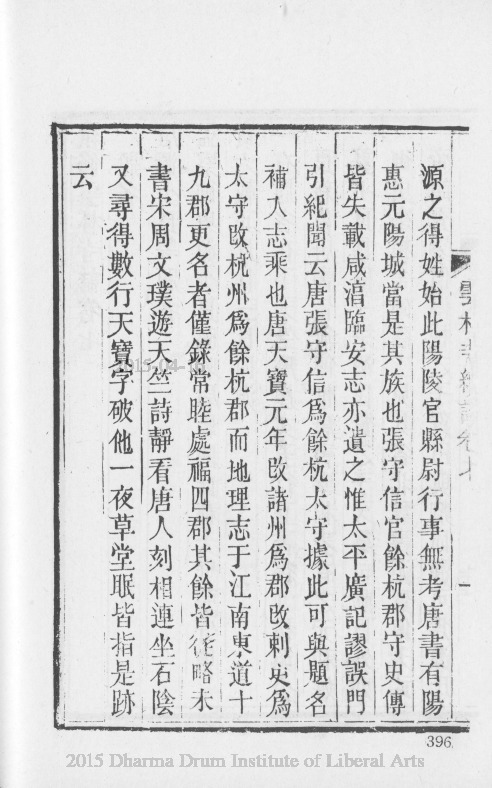 源之得姓始此陽陵官縣尉行事無考唐書有陽
惠元陽城當是其族也張守信官餘杭郡守史傳
皆失載咸淳臨安志亦遺之惟太平廣記謬誤門
引紀聞云唐張守信爲餘杭太守據此可與題名
補入志乘也唐天寶元年改諸州爲郡改刺史爲
太守改杭州爲餘杭郡而地理志于江南東道十
九郡更名者僅錄常睦處福四郡其餘皆從略未
書宋周文璞遊天竺詩靜看唐人刻相連坐石陰
又尋得數行天寶字破他一夜草堂眠皆指是跡
云
396
2015 Dharma Drum Institute of Liberal Arts